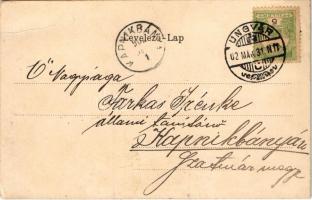 Levelező-Lap
KAPNIKBÁNYA
1
UNGVÁR
02 MÁJ. 31. N 11
Ő Nagysága
Farkas Irénke
állami tanítónő
Kapnikbánya
Szatmár megye